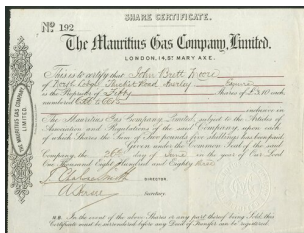 SHARE CERTIFICATE.
No 192
The Mauritius Gas Company, Limited.
LONDON, 14, ST MARY AXE.
This is to certify that John Brett Moore
of North Lodge Thicket Road Anerley Esquire
is the Proprietor of Fifty Shares of £3.10 each
numbered
inclusive in
The Mauritius Gas Company, Limited, subject to the Articles of
Association and Regulations of the said Company, upon each
of which Shares the Sum of Two pounds ten shillings has been paid.
Given under the Common Seal of the said
Company, the day of June in the year of Our Lord
One thousand Eight Hundred and Eighty
DIRECTOR.
Secretary.
N.B. In the event of the above Shares or any part thereof being Sold, this
Certificate must be surrendered before any Deed of Transfer can be registered.
THE MAURITIUS GAS COMPANY LIMITED